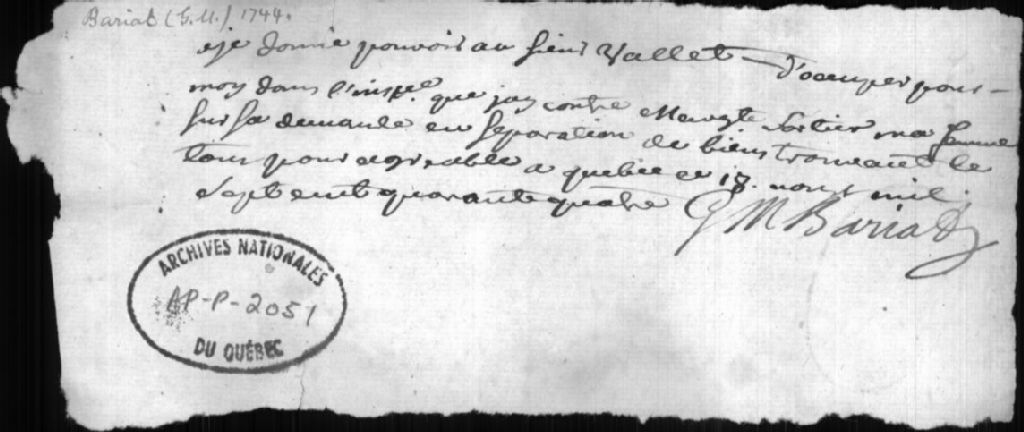 Bariat (G.M.) 1744.
Je donne pouvoir au sieur Vallet d'occuper pour
moy dans l' que jay contre Cartier ma femme
sur sa demande en separation de biens trouvant le
tout pour agreable a quebec ce 18. mil
Sept cent quarante quatre G M Bariat
ARCHIVES NATIONALES
AP-P-2051
DU QUÉBEC